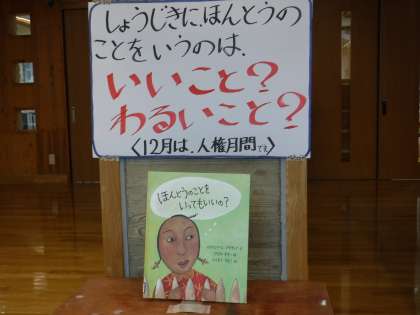 しょうじきに、ほんとうの
ことをいうのは、
いいこと？
わるいこと？
〈12月は、人権月間です〉
ほんとうのことを
いってもいいの？